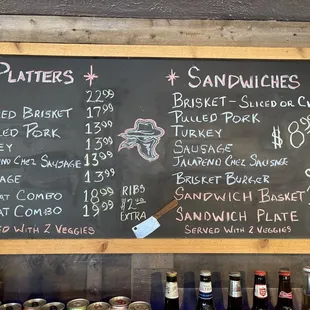 Platters
22.99
ed Brisket 17.99
led Pork 13.99
ey 13.99
eno Chez Sausage 13.99
age 13.99
at Combo 18.99
at Combo 19.99
ed with 2 Veggies
Ribs
$2.00
Extra
Sandwiches
Brisket - Sliced or C
Pulled Pork
Turkey
$8
Sausage
Jalapeno Chez Sausage
Brisket Burger
Sandwich Basket
Sandwich Plate
Served with 2 Veggies